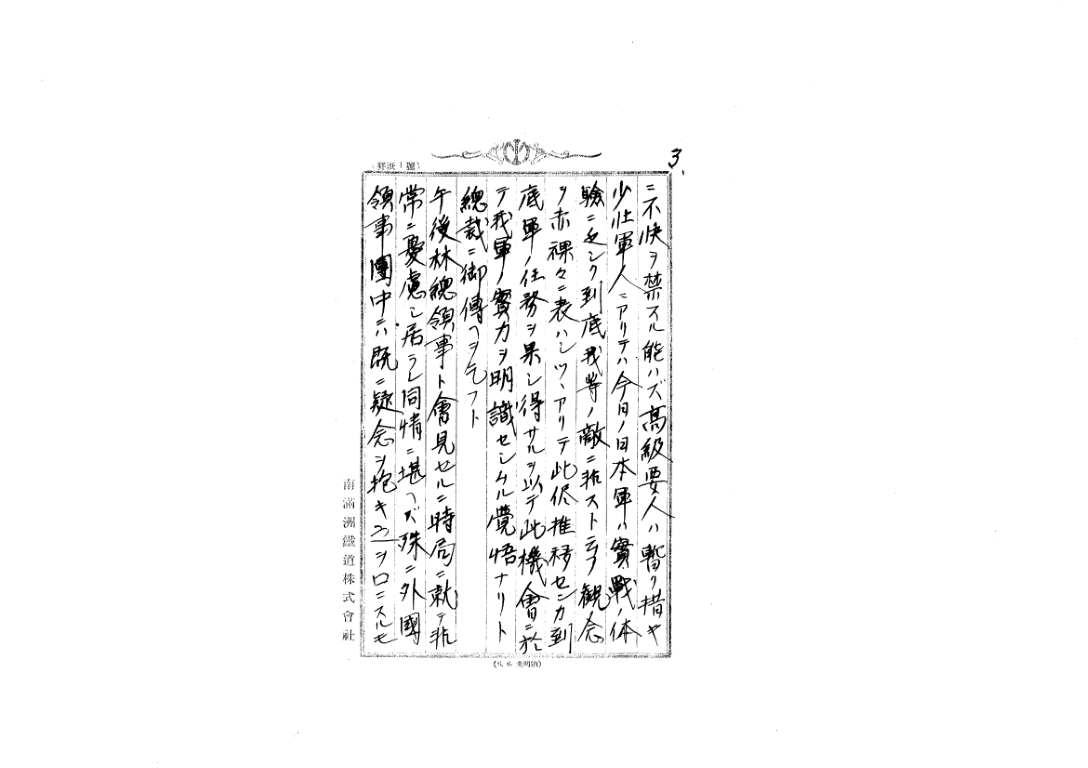 3.
ニ不快ヲ禁スル能ハズ高級要人ハ暫ク措キ
少壮軍人ニアリテハ今日ノ日本軍ハ實戰ノ体
驗ニ乏シク到底我等ノ敵ニ非ストテフ観念
ヲ赤裸々ニ表ハシツヽアリテ此侭推移センカ到
底軍ノ任務ヲ果シ得サルヲ以テ此機會ニ於
テ我軍ノ實力ヲ明識セシムル覺悟ナリト
總裁ニ御傳ヘヲ乞フト
午後林總領事ト會見セルニ時局ニ就テ非
常ニ憂慮シ居ラレ同情ニ堪ヘズ殊ニ外國
領事團中ニハ既ニ疑念ヲ抱キヲロニスルモ
南滿洲鐵道株式會社